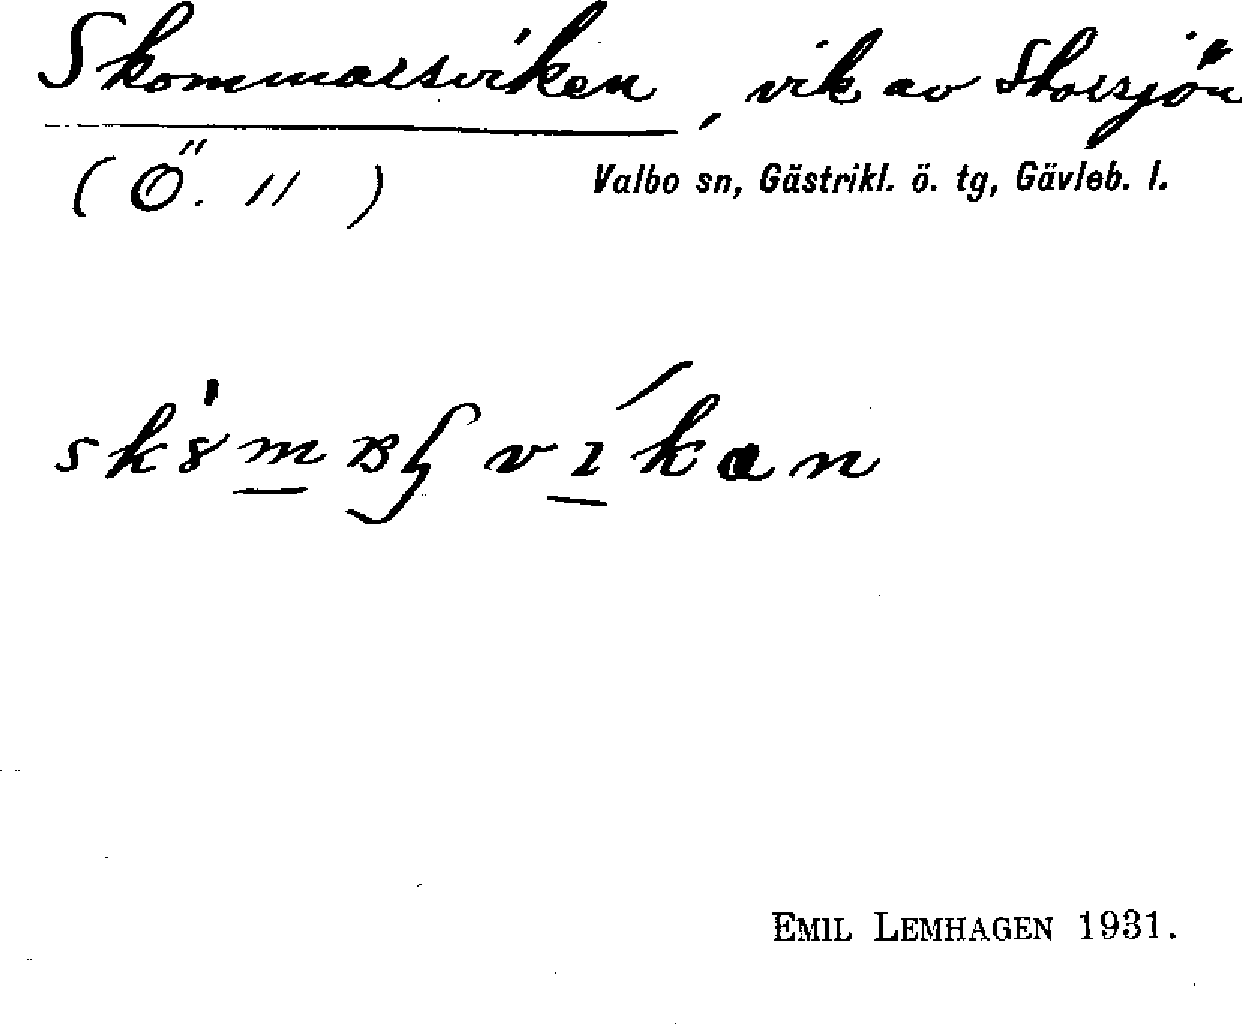 Skommarsviken, vik av Storsjön
(Ö. 11 ) Valbo sn, Gästrikl. ö. tg, Gävleb. l.
EMIL LEMHAGEN 1931.